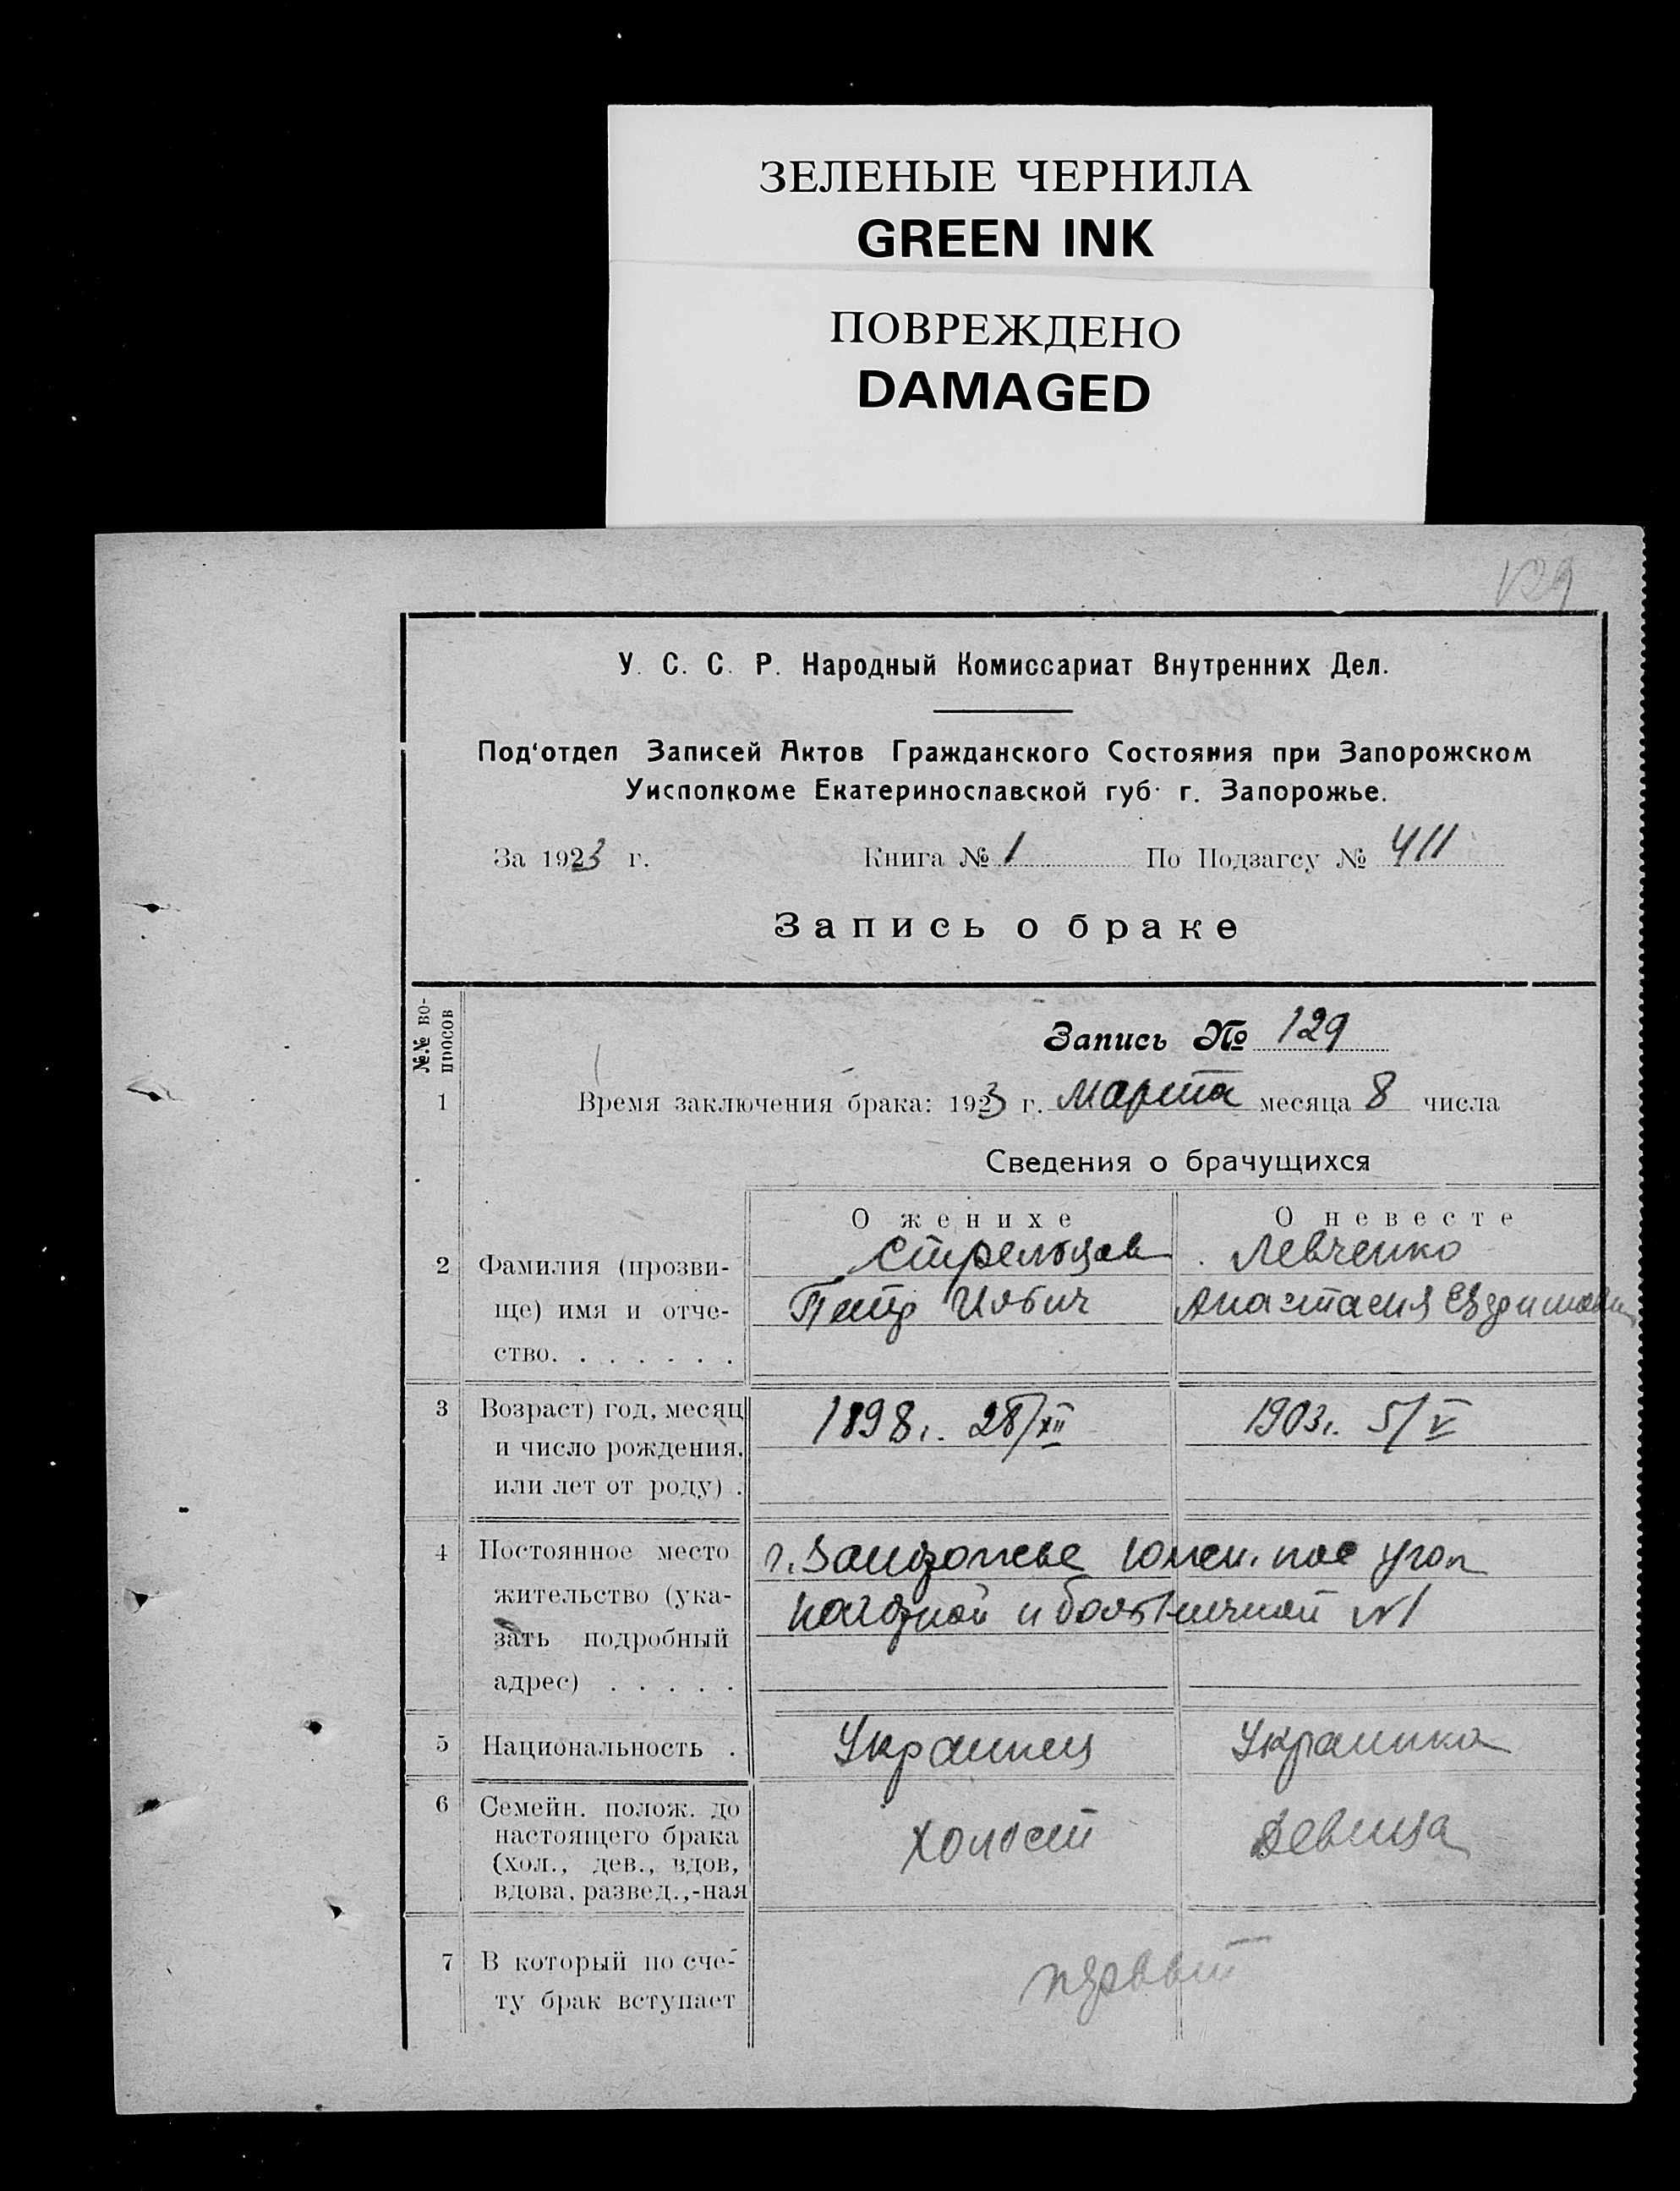 ЗЕЛЕНЫЕ ЧЕРНИЛА
GREEN INK
ПОВРЕЖДЕНО
DAMAGED
129
У. С. С. Р. Народный Комиссариат Внутренних Дел.
Под'отдел Записей Актов Гражданского Состояния при Запорожском
Уисполкоме Екатеринославской губ. г. Запорожье.
За 1923 г. Книга № 1 По Подзагсу № 411
Запись о браке
№№ во-
просов
Запись № 129
1 Время заключения брака: 1923 г. марта месяца 8 числа
Сведения о брачущихся
О женихе О невесте
Стрельцов Левченко
2 Фамилия (прозви-
Петр Ильич Анастасия
ще) имя и отче-
ство. . . . . . .
3 Возраст) год, месяц 1898 г. 28/XII 1903 г. 5/V
и число рождения,
или лет от роду) .
4 Постоянное место г. Запорожье Южн. пос угол
жительство (ука- и больничной №1
зать подробный
адрес) . . . . .
5 Национальность . Украинец Украинка
6 Семейн. полож. до
настоящего брака холост Девица
(хол., дев., вдов,
вдова, развед.,-ная
7 В который по сче- первый
ту брак вступает